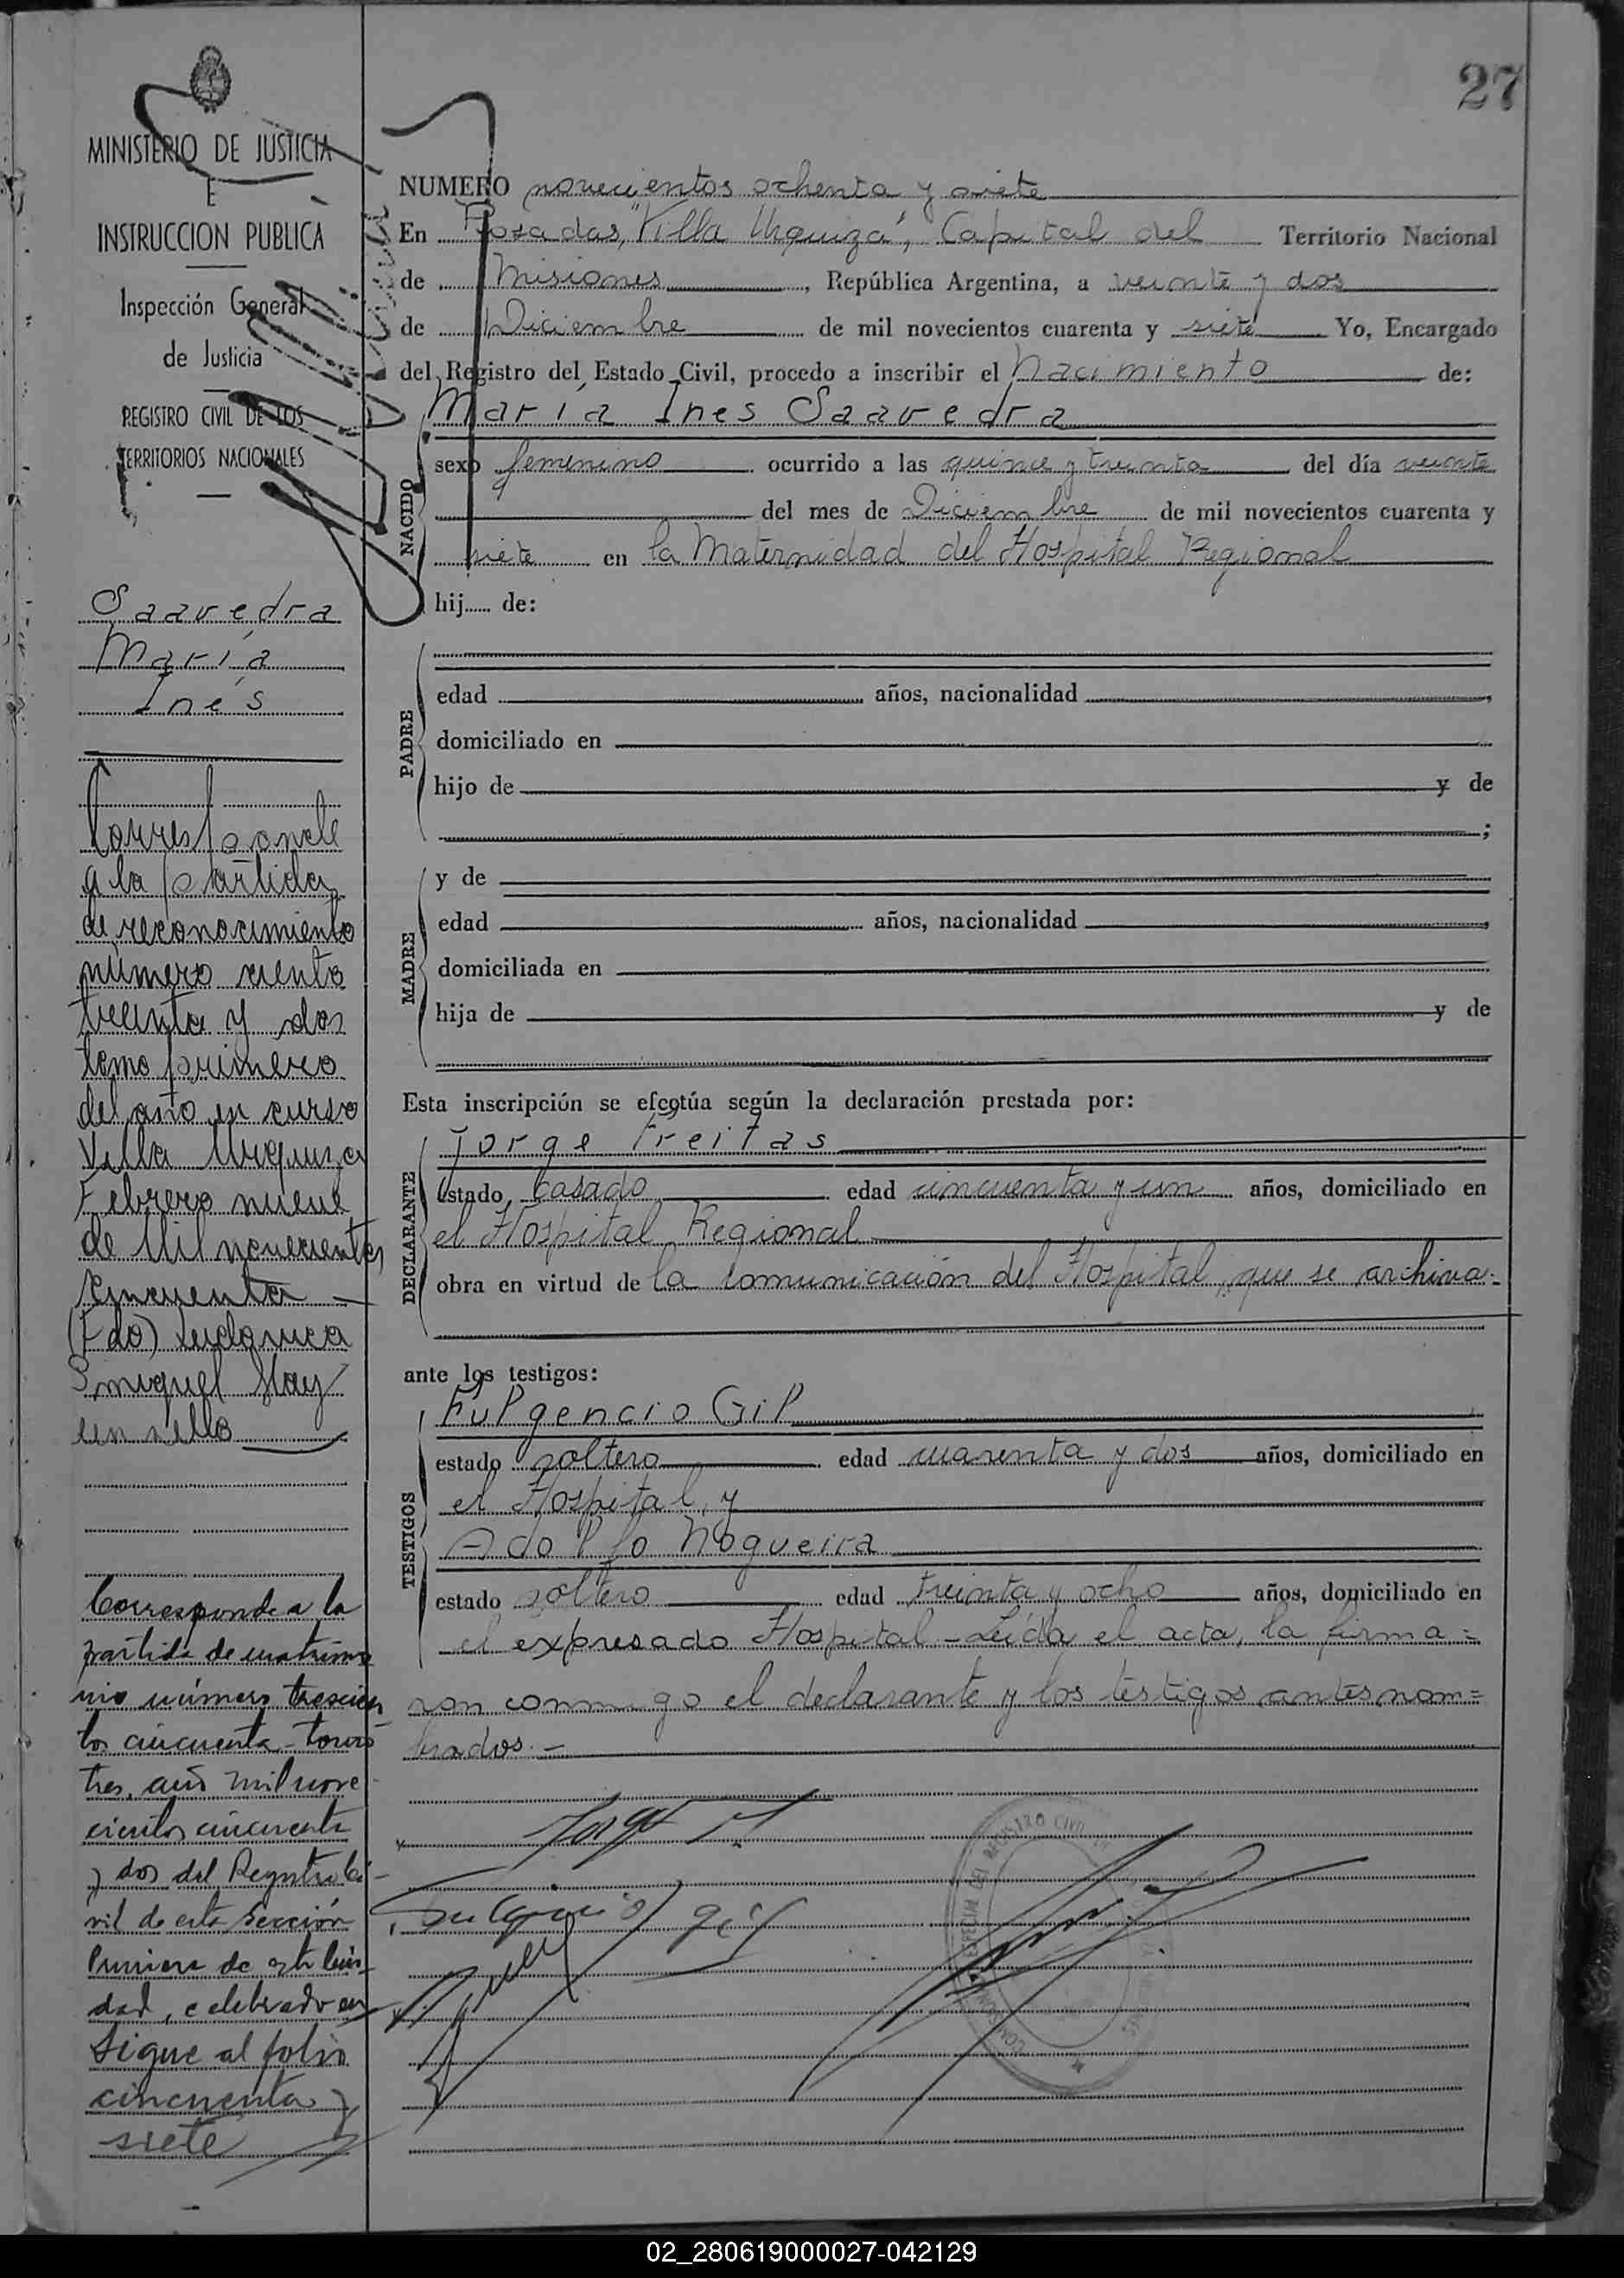 27
MINISTERIO DE JUSTICIA
E
INSTRUCCION PUBLICA
Inspección General
de Justicia
REGISTRO CIVIL DE LOS
TERRITORIOS NACIONALES
Saavedra
María
Inés
Corresponde
a la partida
de reconocimiento
número ciento
treinta y dos
tomo primero
del año en curso
Villa Urquiza
Febrero nueve
de Mil novecientos
cincuenta
(Fdo)
en sello
Corresponde a la
partida de matrimo
nio número trescien
tos cincuenta - tomo
tres, año mil nove
cientos cincuenta
y dos del Registro Ci-
vil de esta Sección
Primera de esta Ciu-
dad, celebrado en
Sigue al folio
cincuenta y
siete
NUMERO novecientos ochenta y siete
En Posadas, "Villa Urquiza", Capital del Territorio Nacional
de Misiones, República Argentina, a veinte y dos
de Diciembre de mil novecientos cuarenta y siete Yo, Encargado
del Registro del Estado Civil, procedo a inscribir el Nacimiento de:
María Ines Saavedra
NACIDO
sexo femenino ocurrido a las quince y treinta del día veinte
del mes de Diciembre de mil novecientos cuarenta y
siete en la Maternidad del Hospital Regional
hij..... de:
PADRE
edad años, nacionalidad
domiciliado en
hijo de y de
;
MADRE
y de
edad años, nacionalidad
domiciliada en
hija de y de
Esta inscripción se efcotúa según la declaración prestada por:
DECLARANTE
Jorge Freitas
estado casado edad cincuenta y un años, domiciliado en
el Hospital Regional
obra en virtud de la comunicación del Hospital, que se archiva.-
ante los testigos:
TESTIGOS
Fulgencio Gil
estado soltero edad cuarenta y dos años, domiciliado en
el Hospital y
Adolfo Nogueira
estado soltero edad treinta y ocho años, domiciliado en
el expresado Hospital - Leída el acta, la firma=
ron conmigo el declarante y los testigos antes nom=
brados.-
REGISTRO CIVIL
02_280619000027-042129